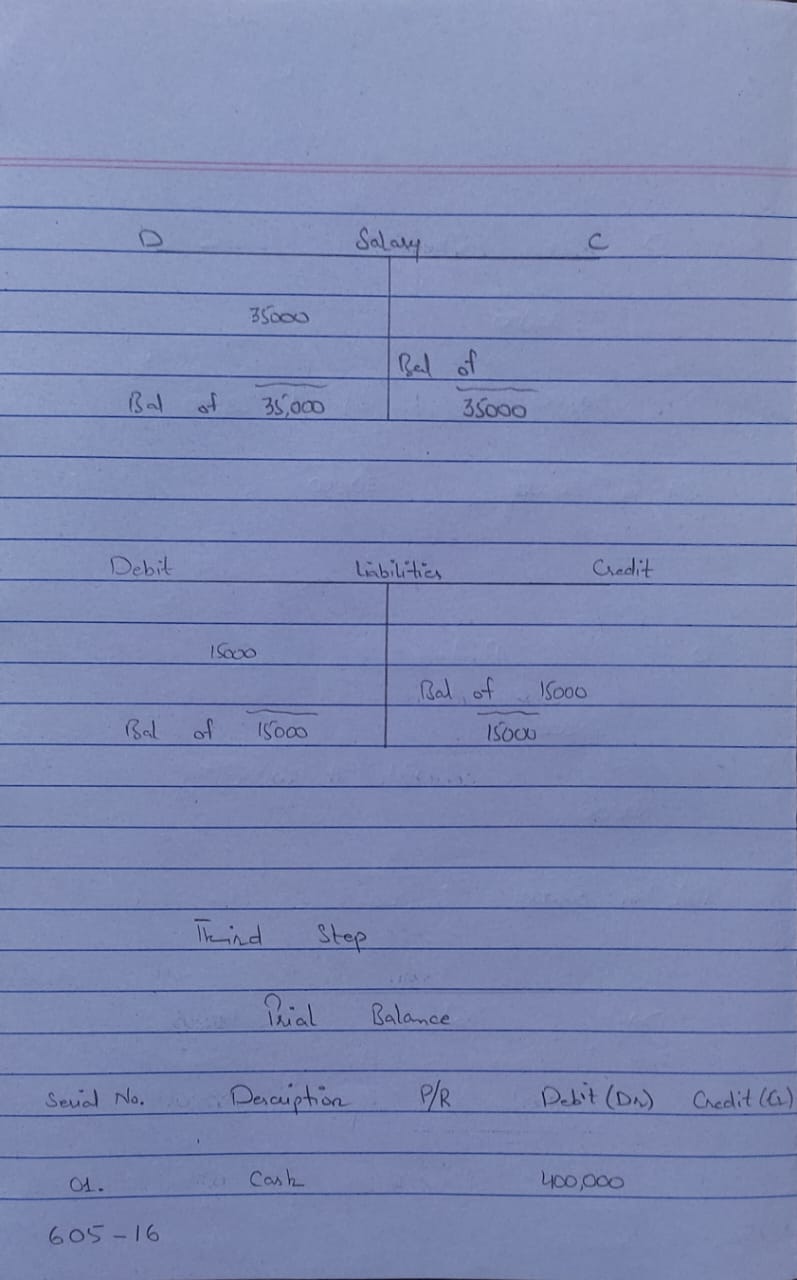 D Salary C
35000
Bal of
Bal of 35,000 35000
Debit Liibilities Credit
15000
Bal of 15000
Bal of 15000 15000
Third Step
Trial Balance
Serial No. Description P/R Debit (Dr) Credit (Cr)
01. Cash 400,000
605-16